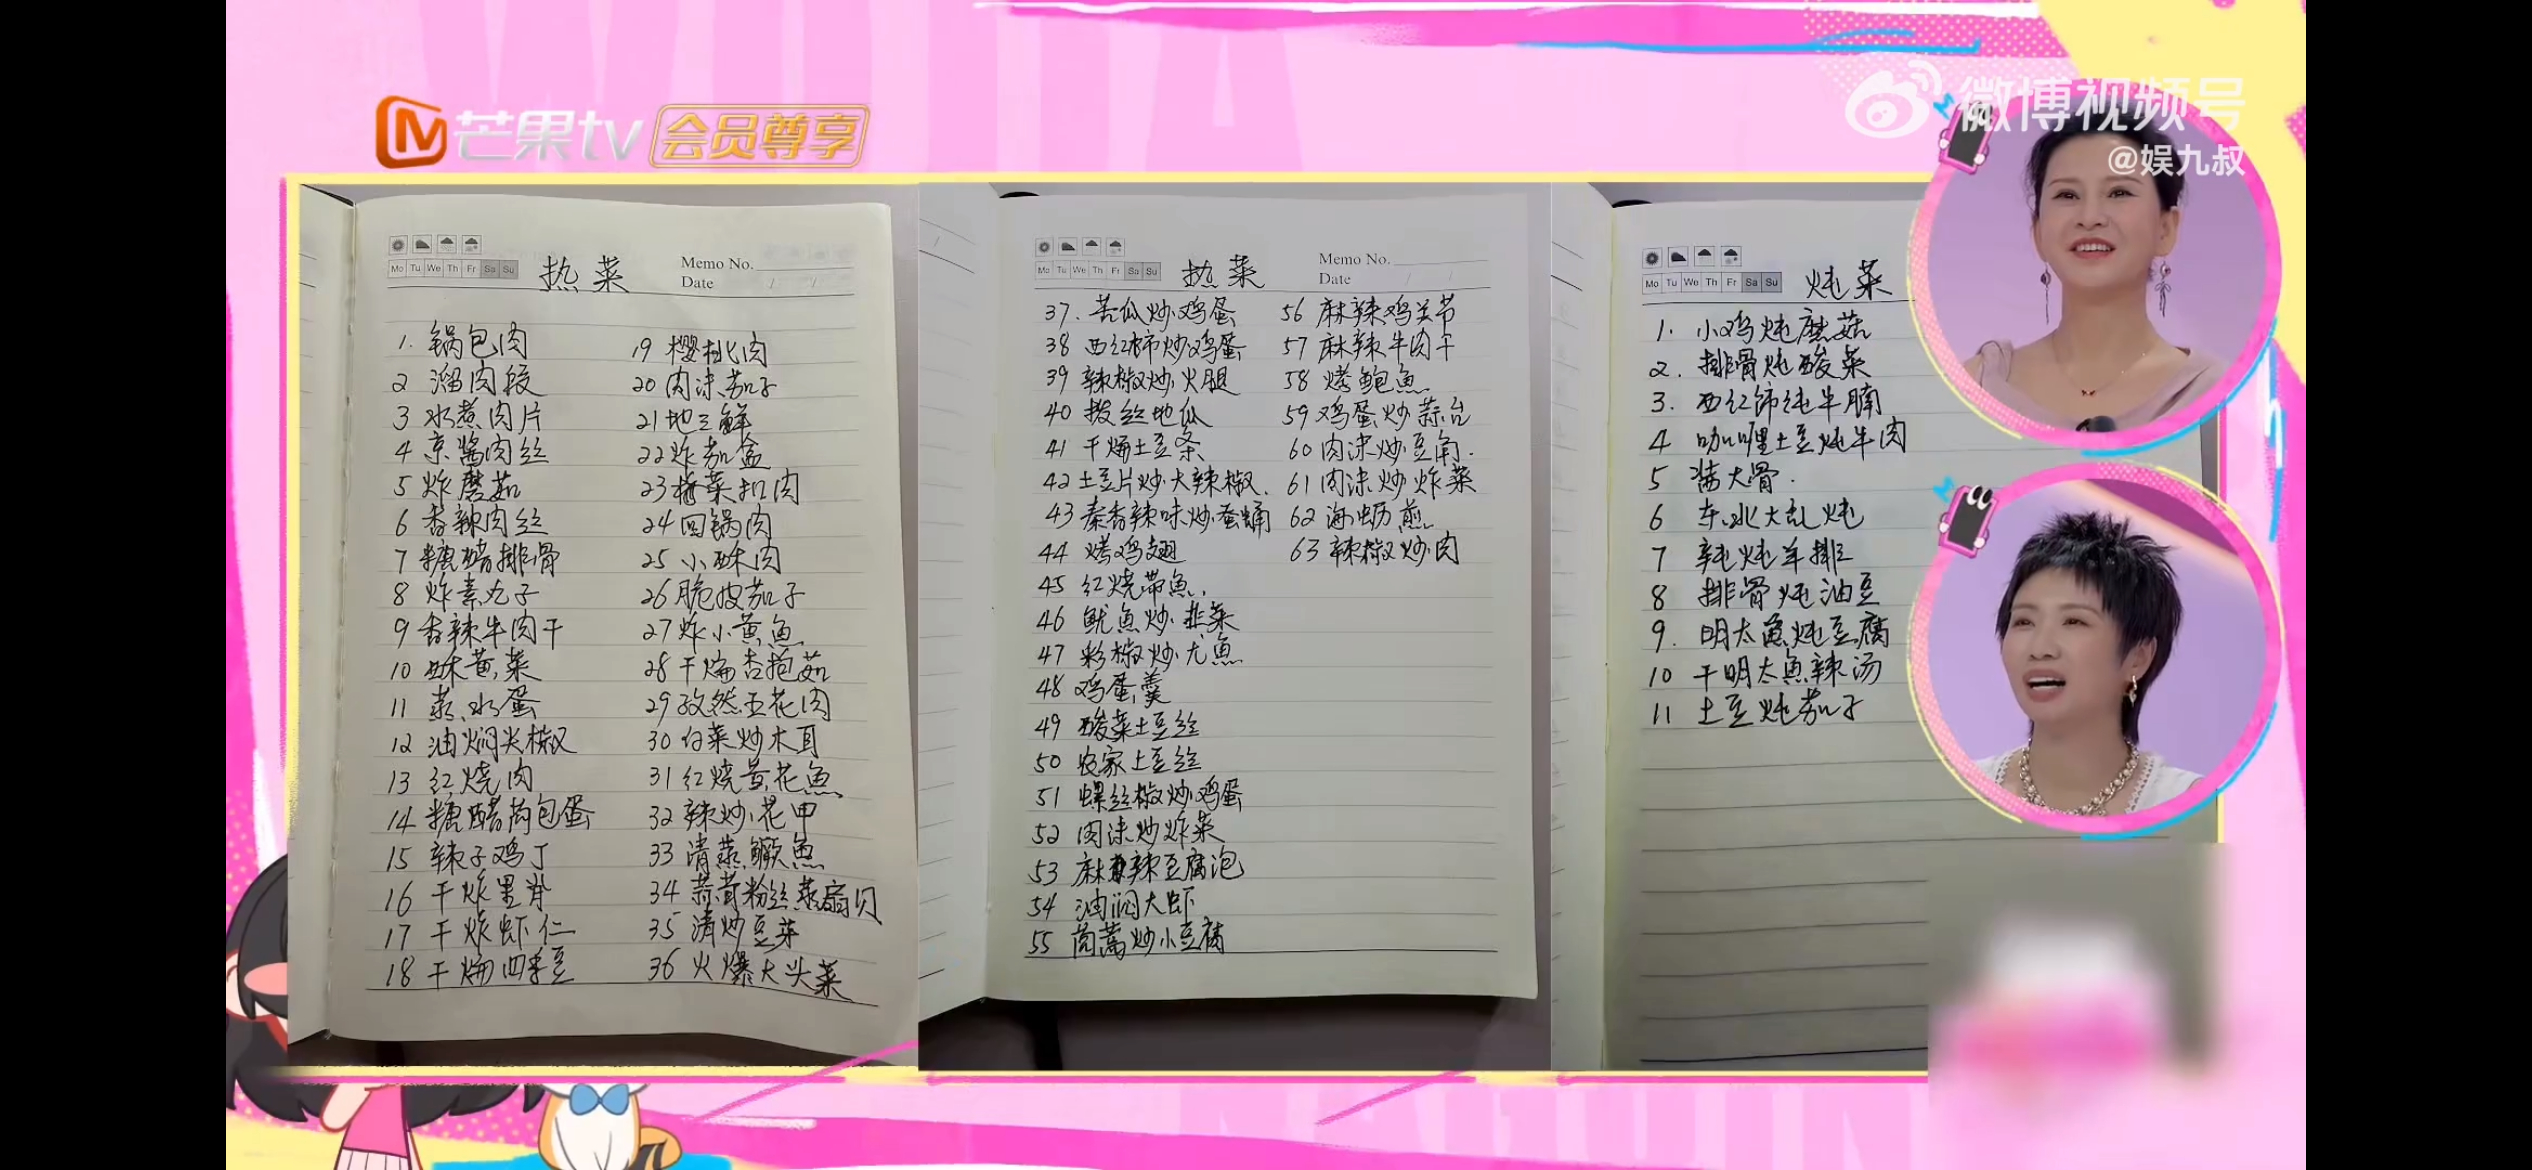 芒果tv 会员尊享
微博视频号
@娱九叔
Mo Tu We Th Fr Sa Su
热菜
Memo No.
Date / /
1. 锅包肉
2 溜肉段
3 水煮肉片
4 京酱肉丝
5 炸蘑菇
6 香辣肉丝
7 糖醋排骨
8 炸素丸子
9 香辣牛肉干
10 酥黄菜
11 蒸水蛋
12 油焖尖椒
13 红烧肉
14 糖醋荷包蛋
15 辣子鸡丁
16 干炸里脊
17 干炸虾仁
18 干煸四季豆
19 樱桃肉
20 肉沫茄子
21 地三鲜
22 炸茄盒
23 梅菜扣肉
24 回锅肉
25 小酥肉
26 脆皮茄子
27 炸小黄鱼
28 干煸杏抱菇
29 孜然五花肉
30 白菜炒木耳
31 红烧黄花鱼
32 辣炒花甲
33 清蒸鳜鱼
34 蒜茸粉丝蒸扇贝
35 清炒豆芽
36 火爆大头菜
Mo Tu We Th Fr Sa Su
热菜
Memo No.
Date / /
37. 苦瓜炒鸡蛋
38 西红柿炒鸡蛋
39 辣椒炒火腿
40 拨丝地瓜
41 干煸土豆条
42 土豆片炒大辣椒.
43 秦香辣味炒蚕蛹
44 烤鸡翅
45 红烧带鱼.
46 鱿鱼炒韭菜
47 彩椒炒尤鱼
48 鸡蛋羹
49 酸菜土豆丝
50 农家土豆丝
51 螺丝椒炒鸡蛋
52 肉沫炒炸菜
53 麻辣豆腐泡
54 油焖大虾
55 茼蒿炒小豆腐
56 麻辣鸡关节
57 麻辣牛肉干
58 烤鲍鱼
59 鸡蛋炒蒜台
60 肉沫炒豆角.
61 肉沫炒炸菜
62 海蛎煎
63 辣椒炒肉
Mo Tu We Th Fr Sa Su
炖菜
1. 小鸡炖蘑菇
2. 排骨炖酸菜
3. 西红饰炖牛腩
4 咖喱土豆炖牛肉
5 酱大骨.
6 东北大乱炖
7 炖羊排
8 排骨炖油豆
9. 明太鱼炖豆腐
10 干明太鱼辣汤
11 土豆炖茄子